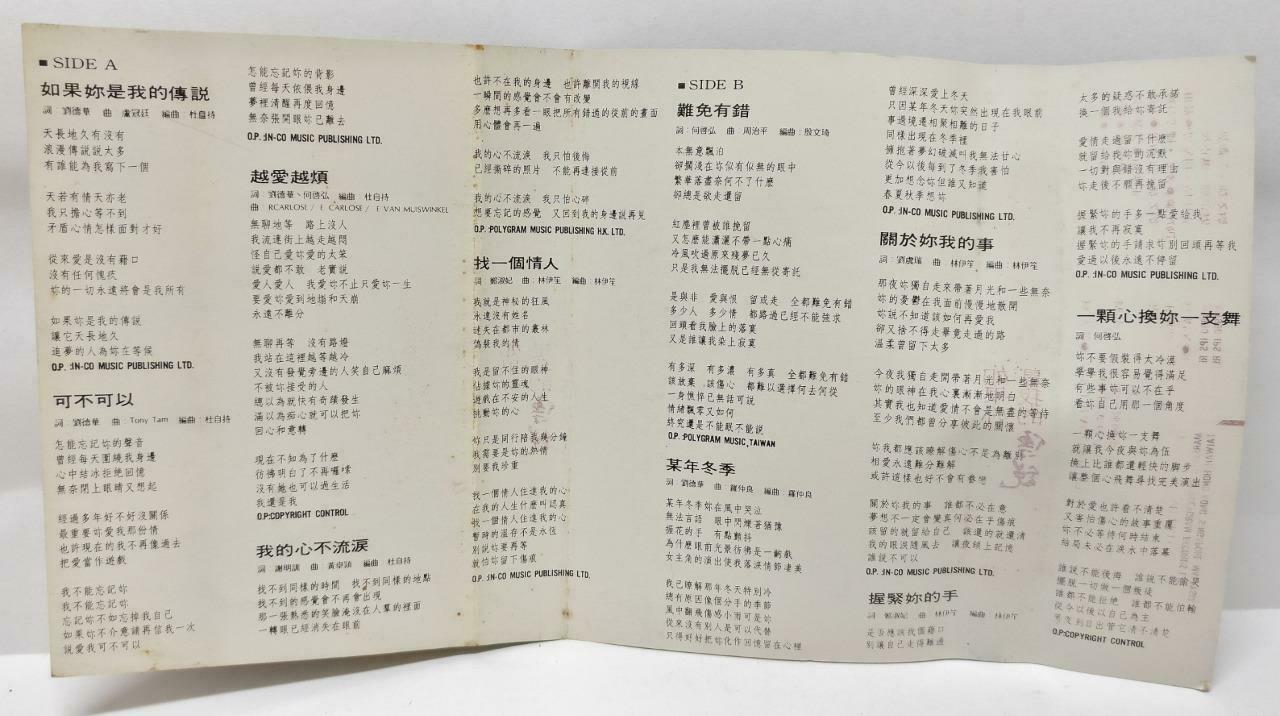 ■ SIDE A
如果妳是我的傳説
詞 劉德華 曲 盧冠廷 編曲 杜自持
天長地久有沒有
浪漫傳説説太多
有誰能為我寫下一個
天若有情天亦老
我只擔心等不到
矛盾心情怎樣面對才好
從來愛是沒有藉口
沒有任何愧疚
妳的一切永遠將會是我所有
如果妳是我的傳説
讓它天長地久
追夢的人為妳在等候
O.P. :IN-CO MUSIC PUBLISHING LTD.
可不可以
詞:劉德華 曲:Tony Tam 編曲:杜自持
怎能忘記妳的聲音
曾經每天圍繞我身邊
心中結冰拒絶回憶
無奈閉上眼睛又想起
經過多年好不好沒關係
最重要妳愛我那份情
也許現在的我不再像過去
把愛當作遊戲
我不能忘記妳
我不能忘記妳
忘記妳不如忘掉我自己
如果妳不介意請再信我一次
説愛我可不可以
怎能忘記妳的背影
曾經每天依偎我身邊
夢裡清醒再度回憶
無奈張開眼妳已離去
O.P. :IN-CO MUSIC PUBLISHING LTD.
越愛越煩
詞:劉德華、何啓弘 編曲 杜自持
曲:RCARLOSE / E CARLOSE / E VAN MUISWINKEL
無聊地等 路上沒人
我流連街上越走越悶
怪自己愛妳愛的太笨
説愛都不敢 老實説
愛人愛人 我愛妳不止只愛妳一生
要愛妳愛到地崩和天崩
永遠不離分
無聊再等 沒有路燈
我站在這裡越等越冷
又沒有發覺旁邊的人又笑自己麻煩
不被妳接受的人
總以為就快有奇蹟發生
滿以為痴心就可以把妳
回心和意轉
現在不知為了什麼
彷彿明白了不再囉嗦
沒有她也可以過生活
我還是我
O.P:COPYRIGHT CONTROL
我的心不流淚
詞 謝明訓 曲 黃卓穎 編曲 杜自持
找不到同樣的時間 找不到同樣的地點
找不到的感覺會不再會出現
那一張熟悉的笑臉淹沒在人羣的裡面
一轉眼已經消失在眼前
也許不在我的身邊 也許離開我的視線
一瞬間的感覺會不會有改變
多麼想再多看一眼把所有錯過的從前的畫面
用心體會再一遍
我的心不流淚 我只怕後悔
已經撕碎的照片 不能再連接從前
我的心不流淚 我只怕心碎
想要忘記的感覺 又回到我的身邊説再見
O.P. :POLYGRAM MUSIC PUBLISHING H.K. LTD.
找一個情人
詞:鄭淑妃 曲:林伊笙 編曲:林伊笙
我就是神秘的狂風
永遠沒有姓名
迷失在都市的叢林
偽裝我的情
我是留不住的眼神
佔據妳的靈魂
遊戲在不安的人生
挑動妳的心
妳只是同行陪我幾分鐘
我需要是妳的熱情
別要我珍重
找一個情人住進我的心
在我的人生什麼可認真
找一個情人住進我的心
暫時的溫存不是永恆
別説妳要再等
就怕妳留下傷痕
O.P. :IN-CO MUSIC PUBLISHING LTD.
■ SIDE B
難免有錯
詞:何啓弘 曲:周治平 編曲:殷文琦
本無意飄泊
卻擱淺在妳似有似無的眼中
繁華落盡奈何不了什麼
卻總是欲走還留
紅塵裡曾被誰挽留
又怎麼能瀟灑不帶一點心痛
冷風吹過原來殘夢已久
只是我無法擺脱已經無從寄託
是與非 愛與恨 留或走 全都難免有錯
多少人 多少情 都路過已經不能強求
回頭看我臉上的落寞
又是誰讓我染上寂寞
有多深 有多濃 有多真 全都難免有錯
該放棄,該傷心 都難以選擇何去何從
一身憔悴已無話可説
情緒飄零又如何
終究還是不能眼不能説
O.P. :POLYGRAM MUSIC,TAIWAN
某年冬季
詞:劉德華 曲:羅仲良 編曲:羅仲良
某年冬季妳在風中哭泣
無法言語 眼中閃爍著猶豫
握花的手 有點顫抖
為什麼眼前光景彷彿是一齣戲
女主角的演出使我落淚情節凄美
我已瞭解那年冬天特別冷
總有原因像個分手的季節
風中飄飛傷感小雨可是妳
從來沒有別人是可以代替
只得好好把妳化作回憶留在心裡
曾經深深愛上冬天
只因某年冬天妳突然出現在我眼前
事過境遷相聚相離的日子
同樣出現在冬季裡
擁抱著夢幻破滅叫我無法甘心
從今以後每到了冬季我害怕
更加想念妳但誰又知道
春夏秋季想妳
O.P. :IN-CO MUSIC PUBLISHING LTD.
關於妳我的事
詞:劉虞瑞 曲:林伊笙 編曲:林伊笙
那夜妳獨自走來帶著月光和一些無奈
妳的憂鬱在我面前慢慢地散開
妳説不知道該如何再愛我
卻又捨不得走畢竟走過的路
溫柔曾留下太多
今夜我獨自走開帶著月光和一些無奈
妳的眼神在我心裏漸漸地明白
其實我也知道愛情不會是無盡的等待
至少我們都曾分享彼此的關懷
妳我都應該瞭解傷心不是為離別
相愛永遠難分難解
或許這樣也好不會有眷戀
關於妳我的事 誰都不必在意
夢想不一定會變真何必在乎傷痕
該留的就留給自己 該還的就還清
我的眼淚隨風去 讓夜鎖上記憶
誰説不可以
O.P. :IN-CO MUSIC PUBLISHING LTD.
握緊妳的手
詞:鄭淑妃 曲 林伊笙 編曲:林伊笙
是否應該找個藉口
別讓自己走得難過
太多的疑惑不敢承諾
換一個我給妳寄託
愛情走過留下什麼
就留給我妳的沉默
一切對與錯沒有理由
妳走後不願再挽留
握緊妳的手多一點愛給我
讓我不再寂寞
握緊妳的手請求妳別回頭再等我
愛過以後永遠不停留
O.P. :IN-CO MUSIC PUBLISHING LTD.
一顆心換妳一支舞
詞:何啓弘
妳不要假裝得太冷漠
學學我很容易覺得滿足
有些事妳可以不在乎
看妳自己用那一個角度
一顆心換妳一支舞
就讓我今夜與妳為伍
換上比誰都還輕快的腳步
讓整個心飛舞尋找完美演出
對於愛也許看不清楚
又害怕傷心的故事重覆
妳不必等待何時結束
結局未必在淚水中落幕
誰説不能後悔 誰説不能偷哭
擺脱一切做一個叛徒
誰都不能拒絶 誰都不能怕輸
從今以後以自己為主
O.P:COPYRIGHT CONTROL